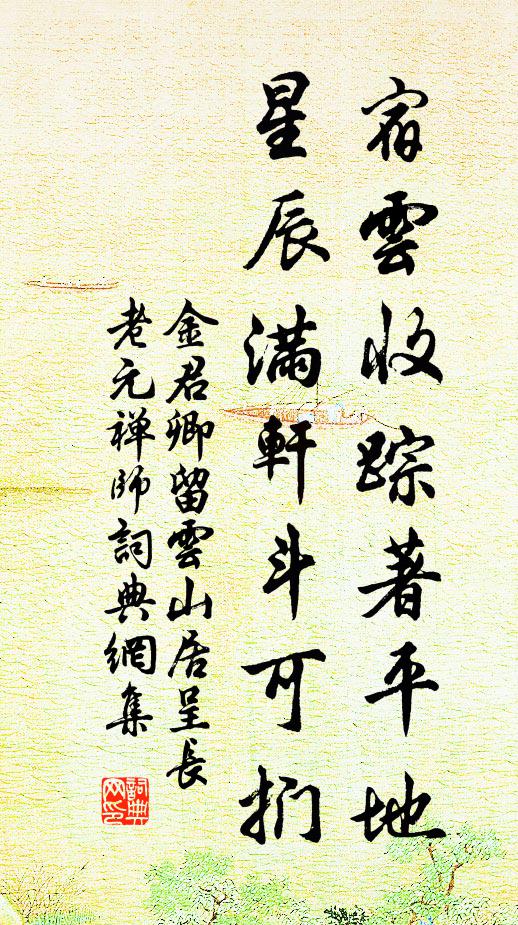 宿雲收踪著平地
星辰滿軒斗可捫
金君卿留雲山居呈長
老元禅師詞典網集
詞典
网印